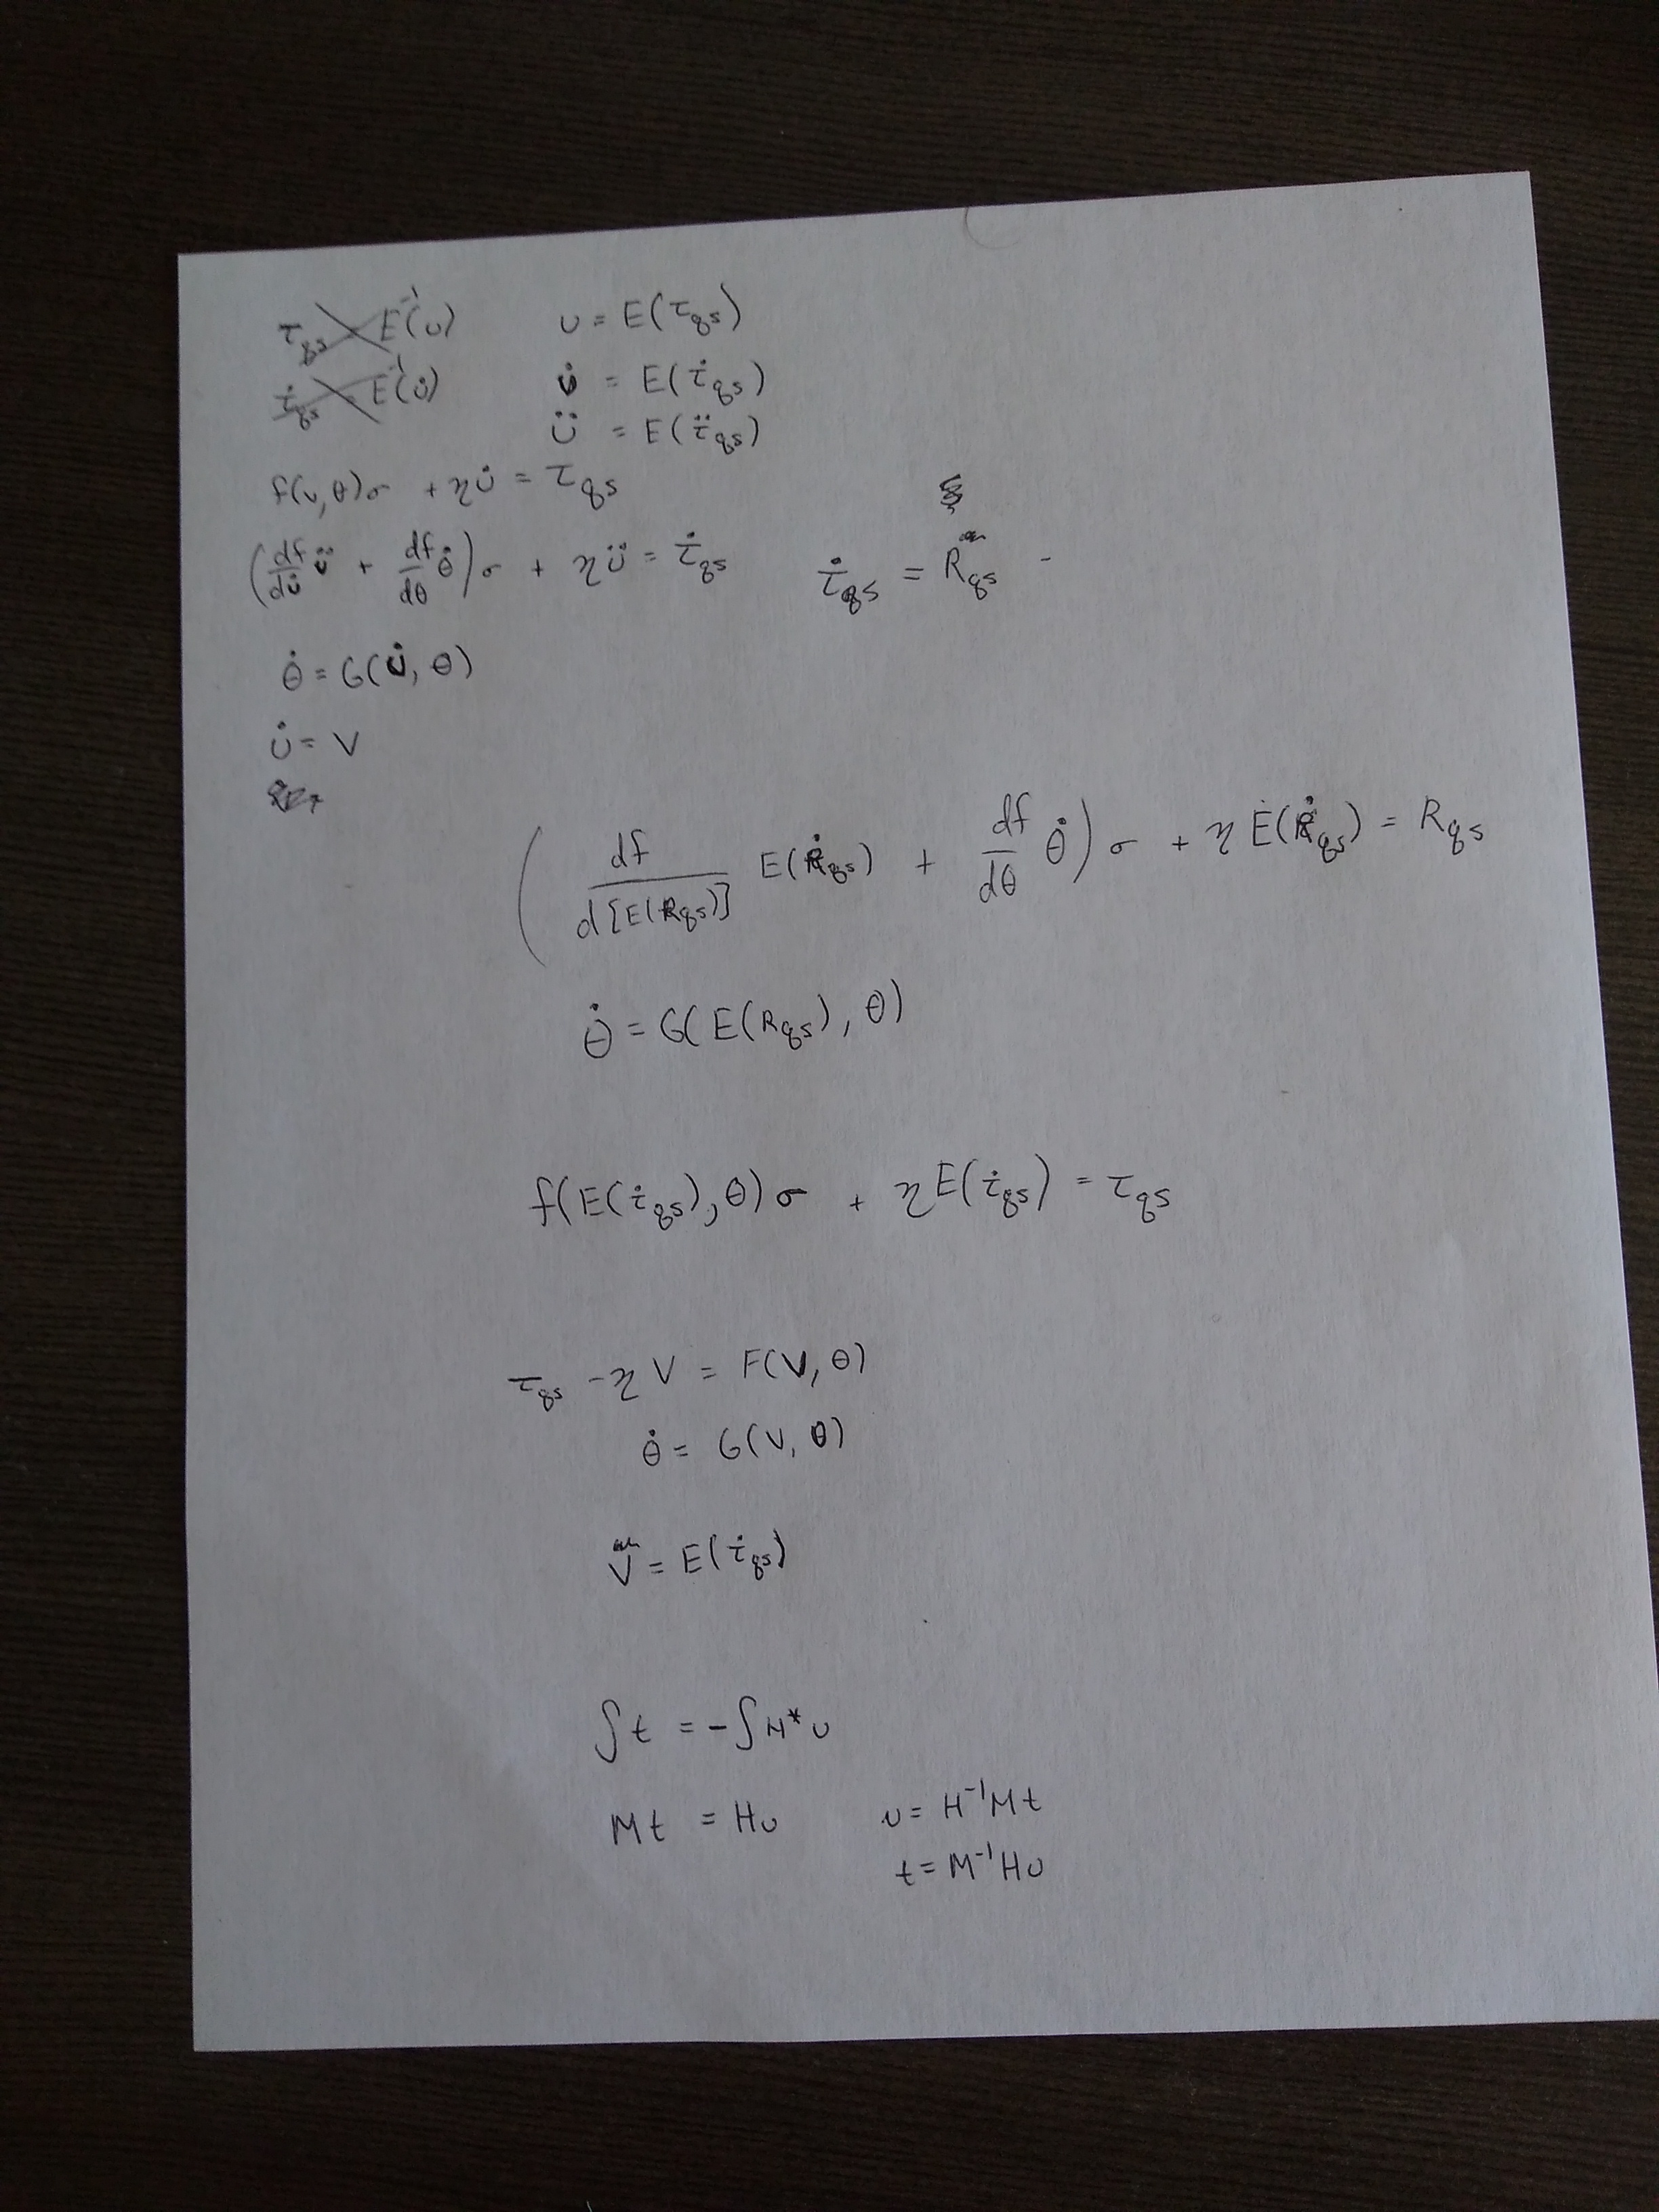 τ_qs = E⁻¹(u)    u = E(τ_qs)
τ̇_qs = E⁻¹(u̇)    u̇ = E(τ̇_qs)
ü = E(τ̈_qs)
f(v,θ)σ + ηu̇ = τ_qs
(df/du̇ ü + df/dθ θ̇)σ + ηü = τ̇_qs    τ̇_qs = R_qs -
θ̇ = G(u̇, θ)
u̇ = V
(df/d[E(R_qs)] E(Ṙ_qs) + df/dθ θ̇)σ + ηE(Ṙ_qs) = R_qs
θ̇ = G(E(R_qs), θ)
f(E(τ̇_qs), θ)σ + ηE(τ̇_qs) = τ_qs
τ_qs - ηV = F(V, θ)
θ̇ = G(V, θ)
V = E(τ̇_qs)
∫t = -∫H*u
Mt = Hu    u = H⁻¹Mt
t = M⁻¹Hu